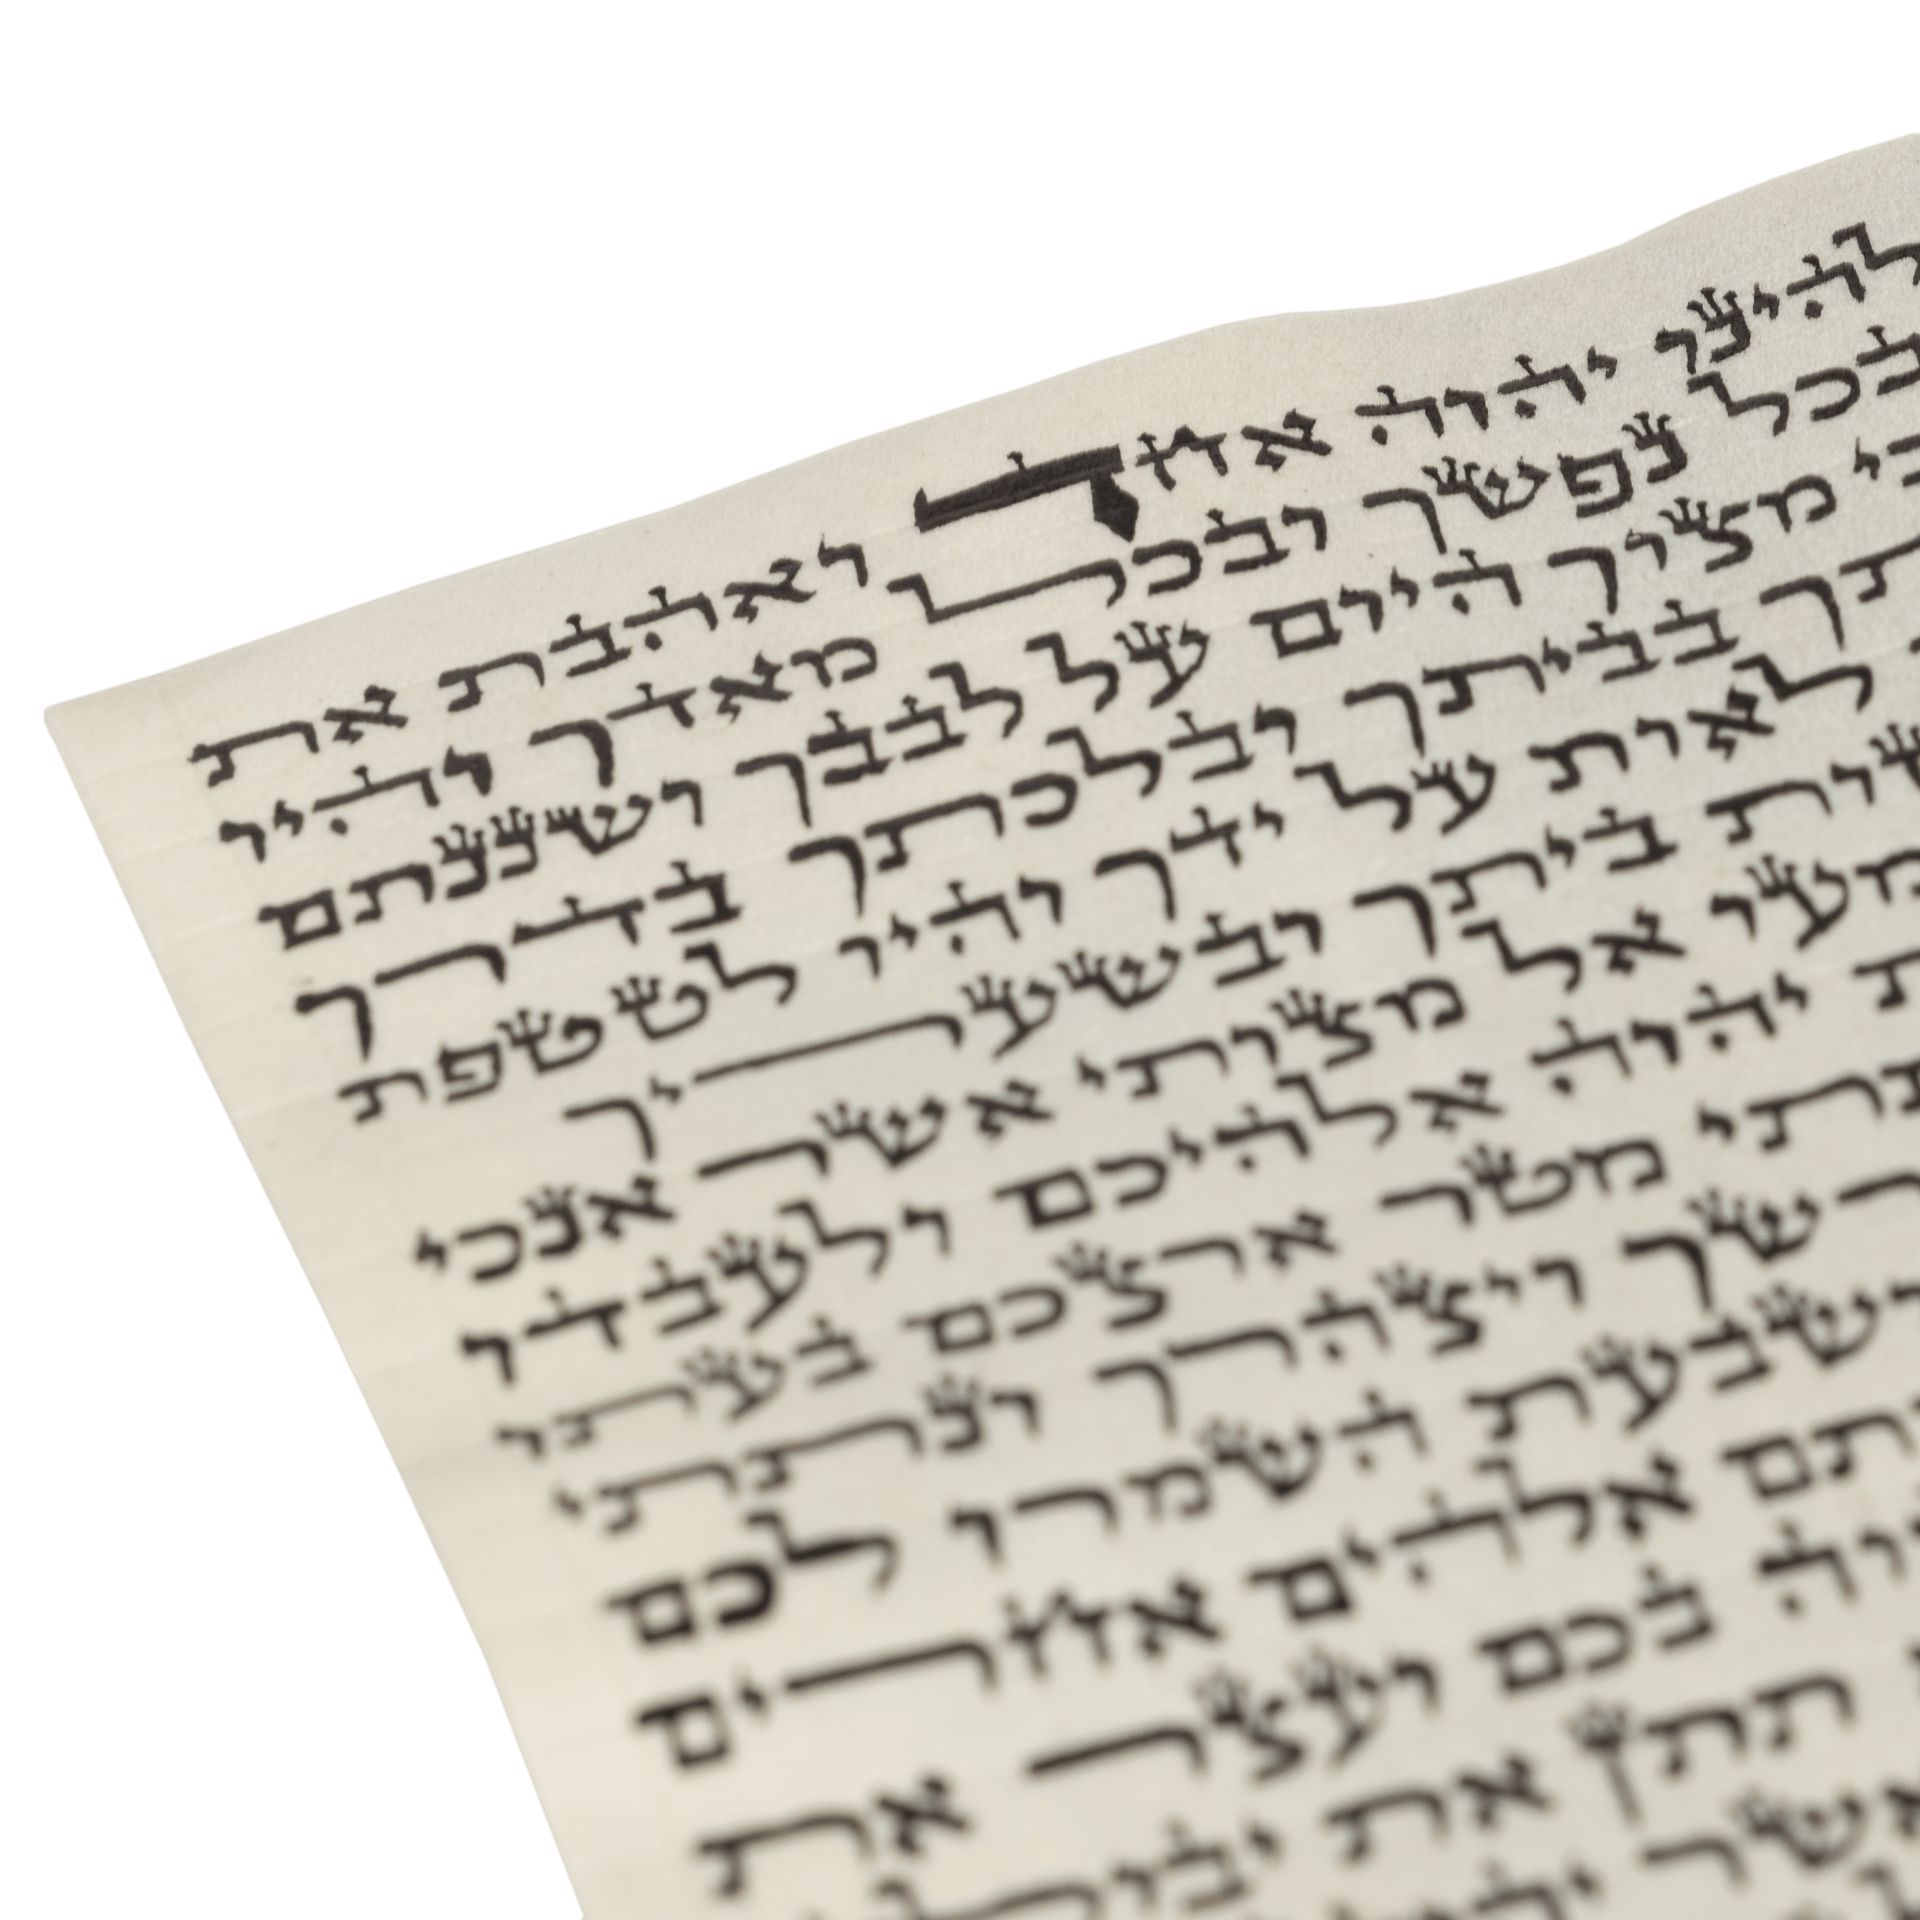 להינו יהוה אחד ואהבת את
בכל נפשך ובכל מאדך והיו
כי מצוך היום על לבבך ושננתם
תך בביתך ובלכתך בדרך
לאות על ידך והיו לטטפת
זות ביתך ובשעריך
מעו אל מצותי אשר אנכי
ת יהוה אלהיכם ולעבדו
תתי מטר ארצכם בעתו
רשך ויצהרך ונתתי
ושבעת השמרו לכם
תם אלהים אחרים
וה בכם ועצר את
תתן את יבולה
אשר